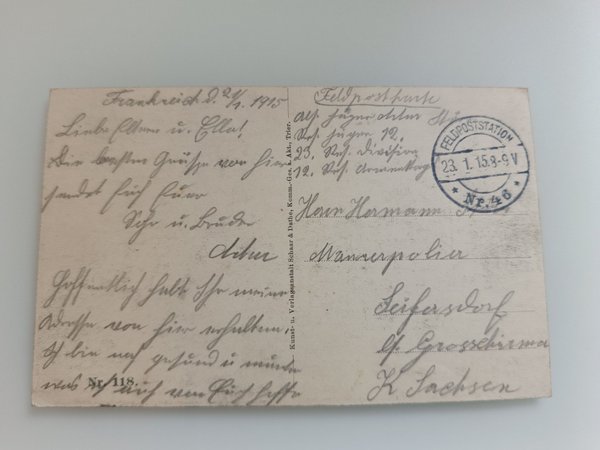 Frankreich d. 21/1. 1915
Liebe Eltern u. Ella!
Die besten Grüsse von hier
sendet Euch Euer
u. Bruder
Hoffentlich habt Ihr meine
Adresse von hier erhalten.
Ich bin noch gesund u.
was auch von Euch hoffe
Nr. 118.
Kunst- u. Verlagsanstalt Schaar & Dathe, Komm.-Ges. a. Akt., Trier.
Feldpostkarte
Jäger
Res. Jäger 12.
23. Res. Division
12. Res.
FELDPOSTSTATION
23. 1. 15. 8-9 V
* Nr. 46 *
Herrn Hermann
Maurerpolier
Seifersdorf
b/ Grosschirma
K. Sachsen